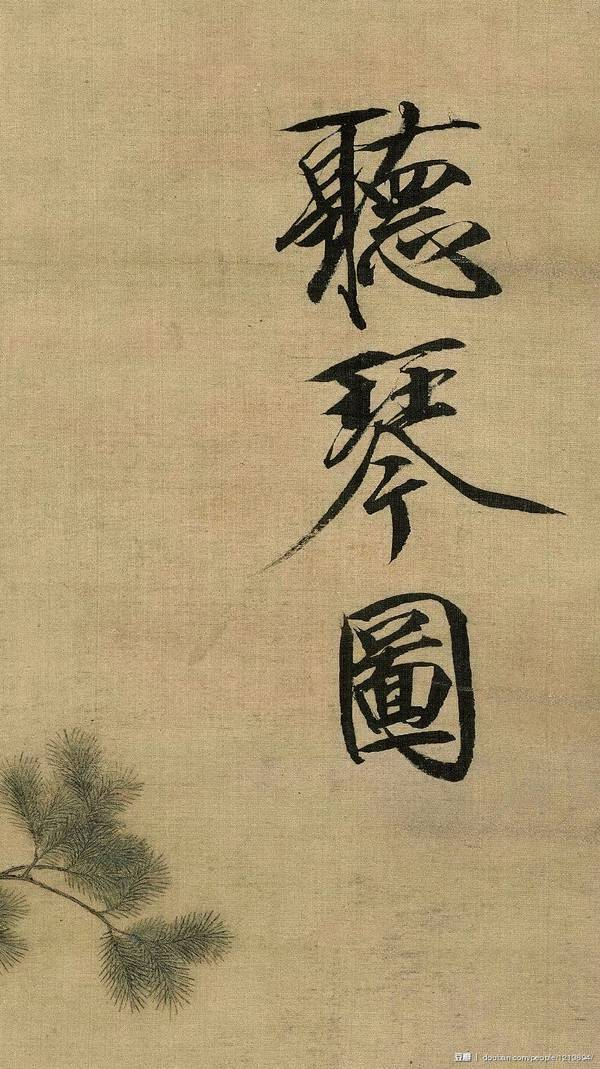 聽琴圖
豆瓣 | douban.com/people/1219894/